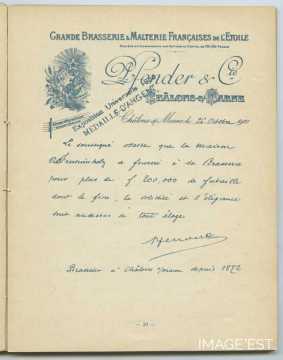 GRANDE BRASSERIE & MALTERIE FRANÇAISES DE L'ETOILE
& Cie
CHÂLONS-s-MARNE
EXPOSITION Universelle
MÉDAILLE D'ARGENT
Châlons s/ Marne, le 24 Octobre
Le soussigné atteste que la maison
Fruhinsholz a fourni à la Brasserie
pour plus de f 200,000 de futaille
dont le fini, la solidité et l'élégance
sont au dessus de tout éloge
Brasseur à Châlons s/ Marne depuis 1872
IMAGE'EST